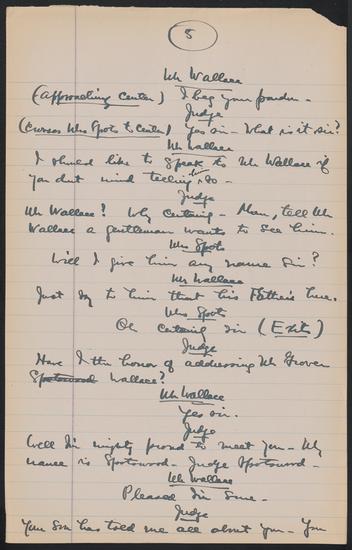 5
Mr Wallace
(approaching center) I beg your pardon -
Judge
(crosses Mrs Spots to center) Yes sir - What is it sir?
Mr Wallace
I should like to speak to Mr Wallace if
you dont mind telling so -
Judge
Mr Wallace? Why certainly - Mam, tell Mr
Wallace a gentleman wants to see him.
Mrs Spots
Will I give him any name Sir?
Mr Wallace
Just say to him that his Father's here.
Mrs Spots
Oh certainly sir (Exits)
Judge
Have I the honor of addressing Mr Grover
Spotswood Wallace?
Mr Wallace
Yes sir.
Judge
Well I'm mighty proud to meet you - My
name is Spotswood - Judge Spotswood -
Mr Wallace
Pleased I'm sure -
Judge
Your Son has told me all about you - You